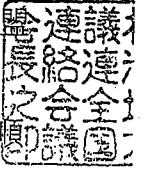 議連全国
連絡会議
長之印